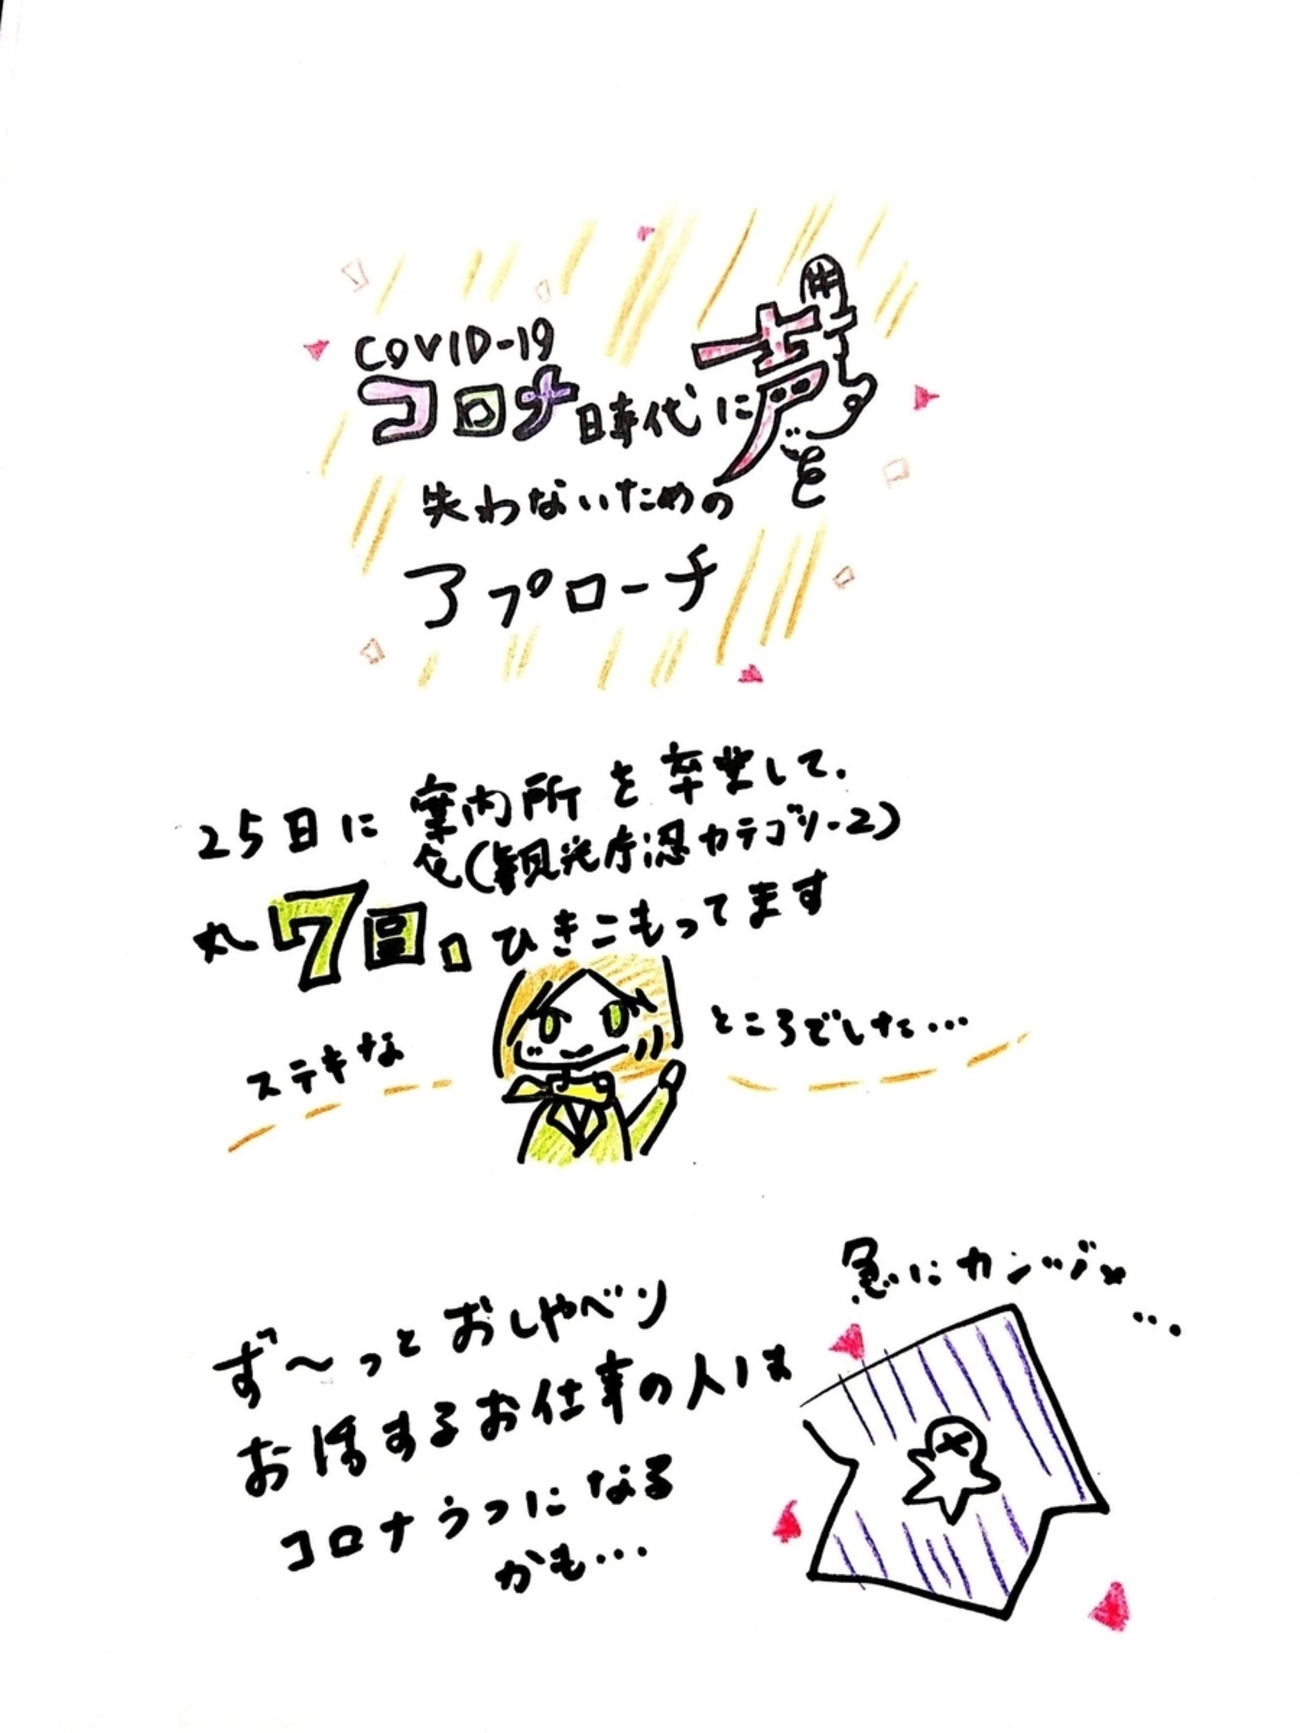 COVID-19
コロナ時代に声を
失わないための
アプローチ
25日に案内所を卒業して、
(観光庁認カテゴリー2)
丸7日。ひきこもってます
ステキな
ところでした…
急にカンヅメ
…
ず〜っとおしゃべり
お話するお仕事の人は
コロナうつになる
かも…